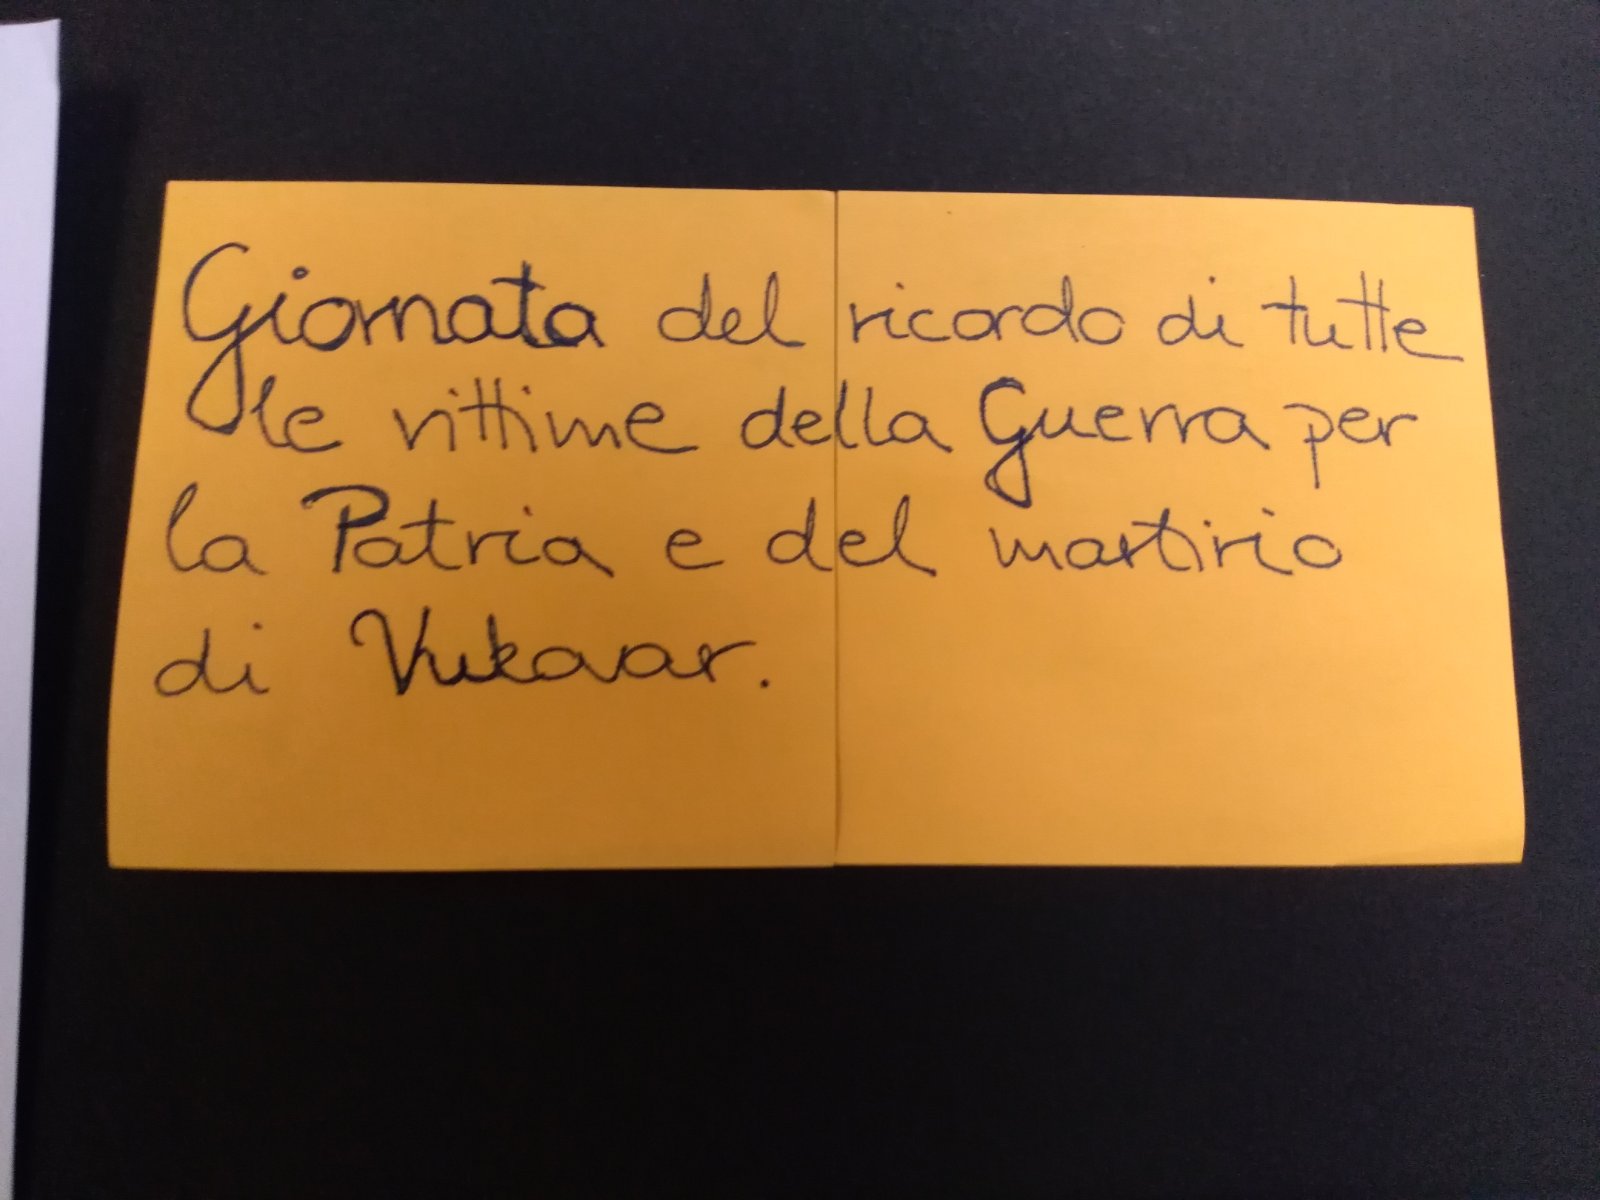 Giornata del ricordo di tutte
le vittime della Guerra per
la Patria e del martirio
di Vukovar.